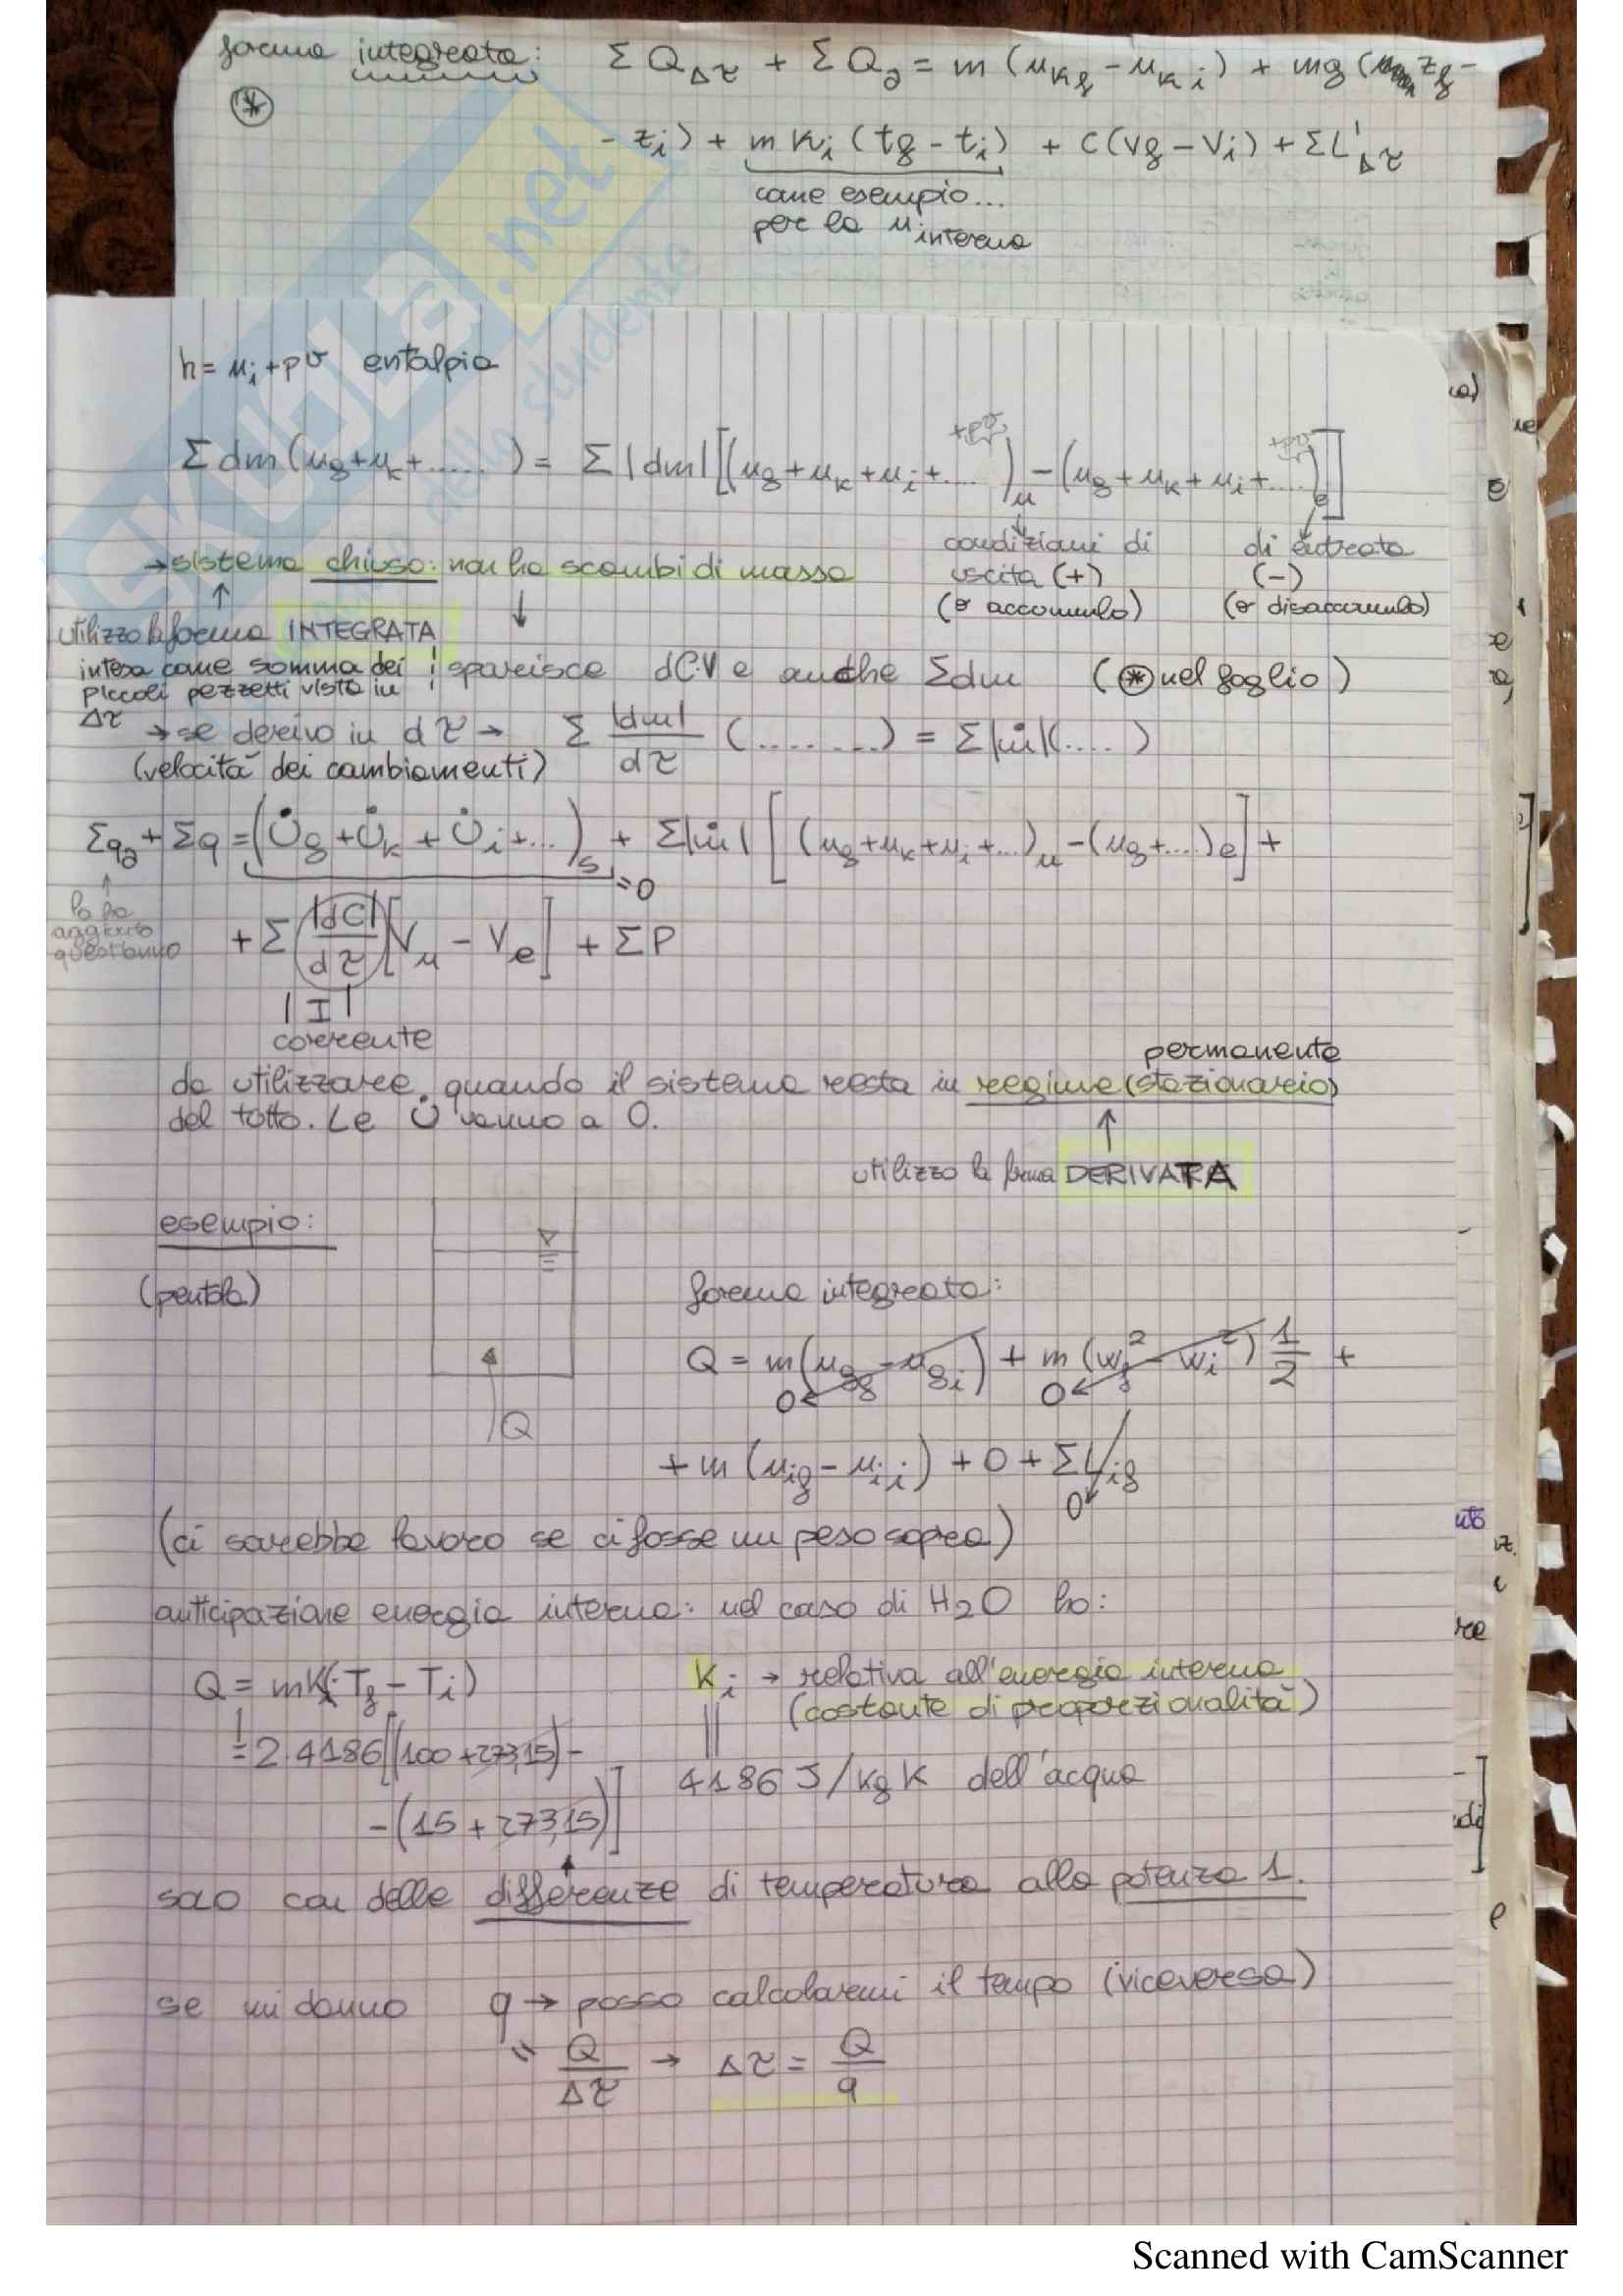 forma integrata: Σ Q_Δτ + Σ Q_∂ = m (u_kf - u_ki) + mg (z_f -
⊛
- z_i) + m K_i (t_f - t_i) + C(V_f - V_i) + ΣL'_Δτ
come esempio...
per la u interna
h = u_i + pv entalpia
+pv +pv
Σ dm (u_g + u_k + ......) = Σ |dm| [(u_g + u_k + u_i + ....)_u - (u_g + u_k + u_i + ....)_e]
condizioni di di entrata
uscita (+) (-)
(o accumulo) (o disaccumulo)
→ sistema chiuso: non ho scambi di massa
↑ ↓
utilizzo la forma INTEGRATA
intesa come somma dei
piccoli pezzetti visto in
Δτ
sparisce dC·V e anche Σdm (⊛ nel foglio)
→ se derivo in dτ → Σ |dm|/dτ (........) = Σ|ṁ|(....)
(velocità dei cambiamenti)
Σq_∂ + Σq = (U̇_g + U̇_k + U̇_i + ...)_s + Σ|ṁ| [(u_g + u_k + u_i + ...)_u - (u_g + ....)_e] +
=0
↑
lo ha
aggiunto
quest'anno
+ Σ |dC|/dτ [V_u - V_e] + ΣP
|I|
corrente
permanente
da utilizzare quando il sistema resta in regime (stazionario)
del tutto. Le U̇ vanno a 0.
↑
utilizzo la forma DERIVATA
esempio:
(pentola)
Q
forma integrata:
Q = m(u_gf - u_gi) + m (w_f² - w_i²) 1/2 +
0 0
+ m (u_if - u_ii) + 0 + ΣL_if
0
(ci sarebbe lavoro se ci fosse un peso sopra)
anticipazione energia interna: nel caso di H2O ho:
Q = mK_i(T_f - T_i) K_i → relativa all'energia interna
(costante di proporzionalità)
= 2·4186[(100 + 273,15) -
- (15 + 273,15)]
4186 J/kg K dell'acqua
solo con delle differenze di temperatura alla potenza 1.
se mi danno q → posso calcolarmi il tempo (viceversa)
= Q/Δτ → Δτ = Q/q
Scanned with CamScanner